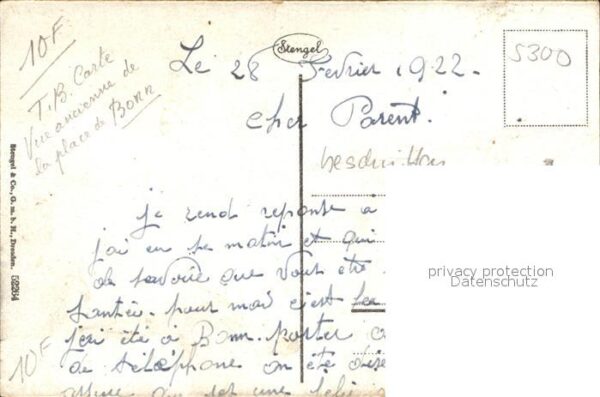 Stengel
10F
T.B. Carte
Vue ancienne de
la place de Bonn
5300
Le 28 Fevrier 1922-
cher Parent.
je rend reponse a
j'ai eu se matin et qui
de savoir que vous ete
santée. pour moi c'est
j'ai été a Bonn. porter
de téléphone on ete
une
Stengel & Co., G. m. b. H., Dresden. 52284
10F
privacy protection
Datenschutz